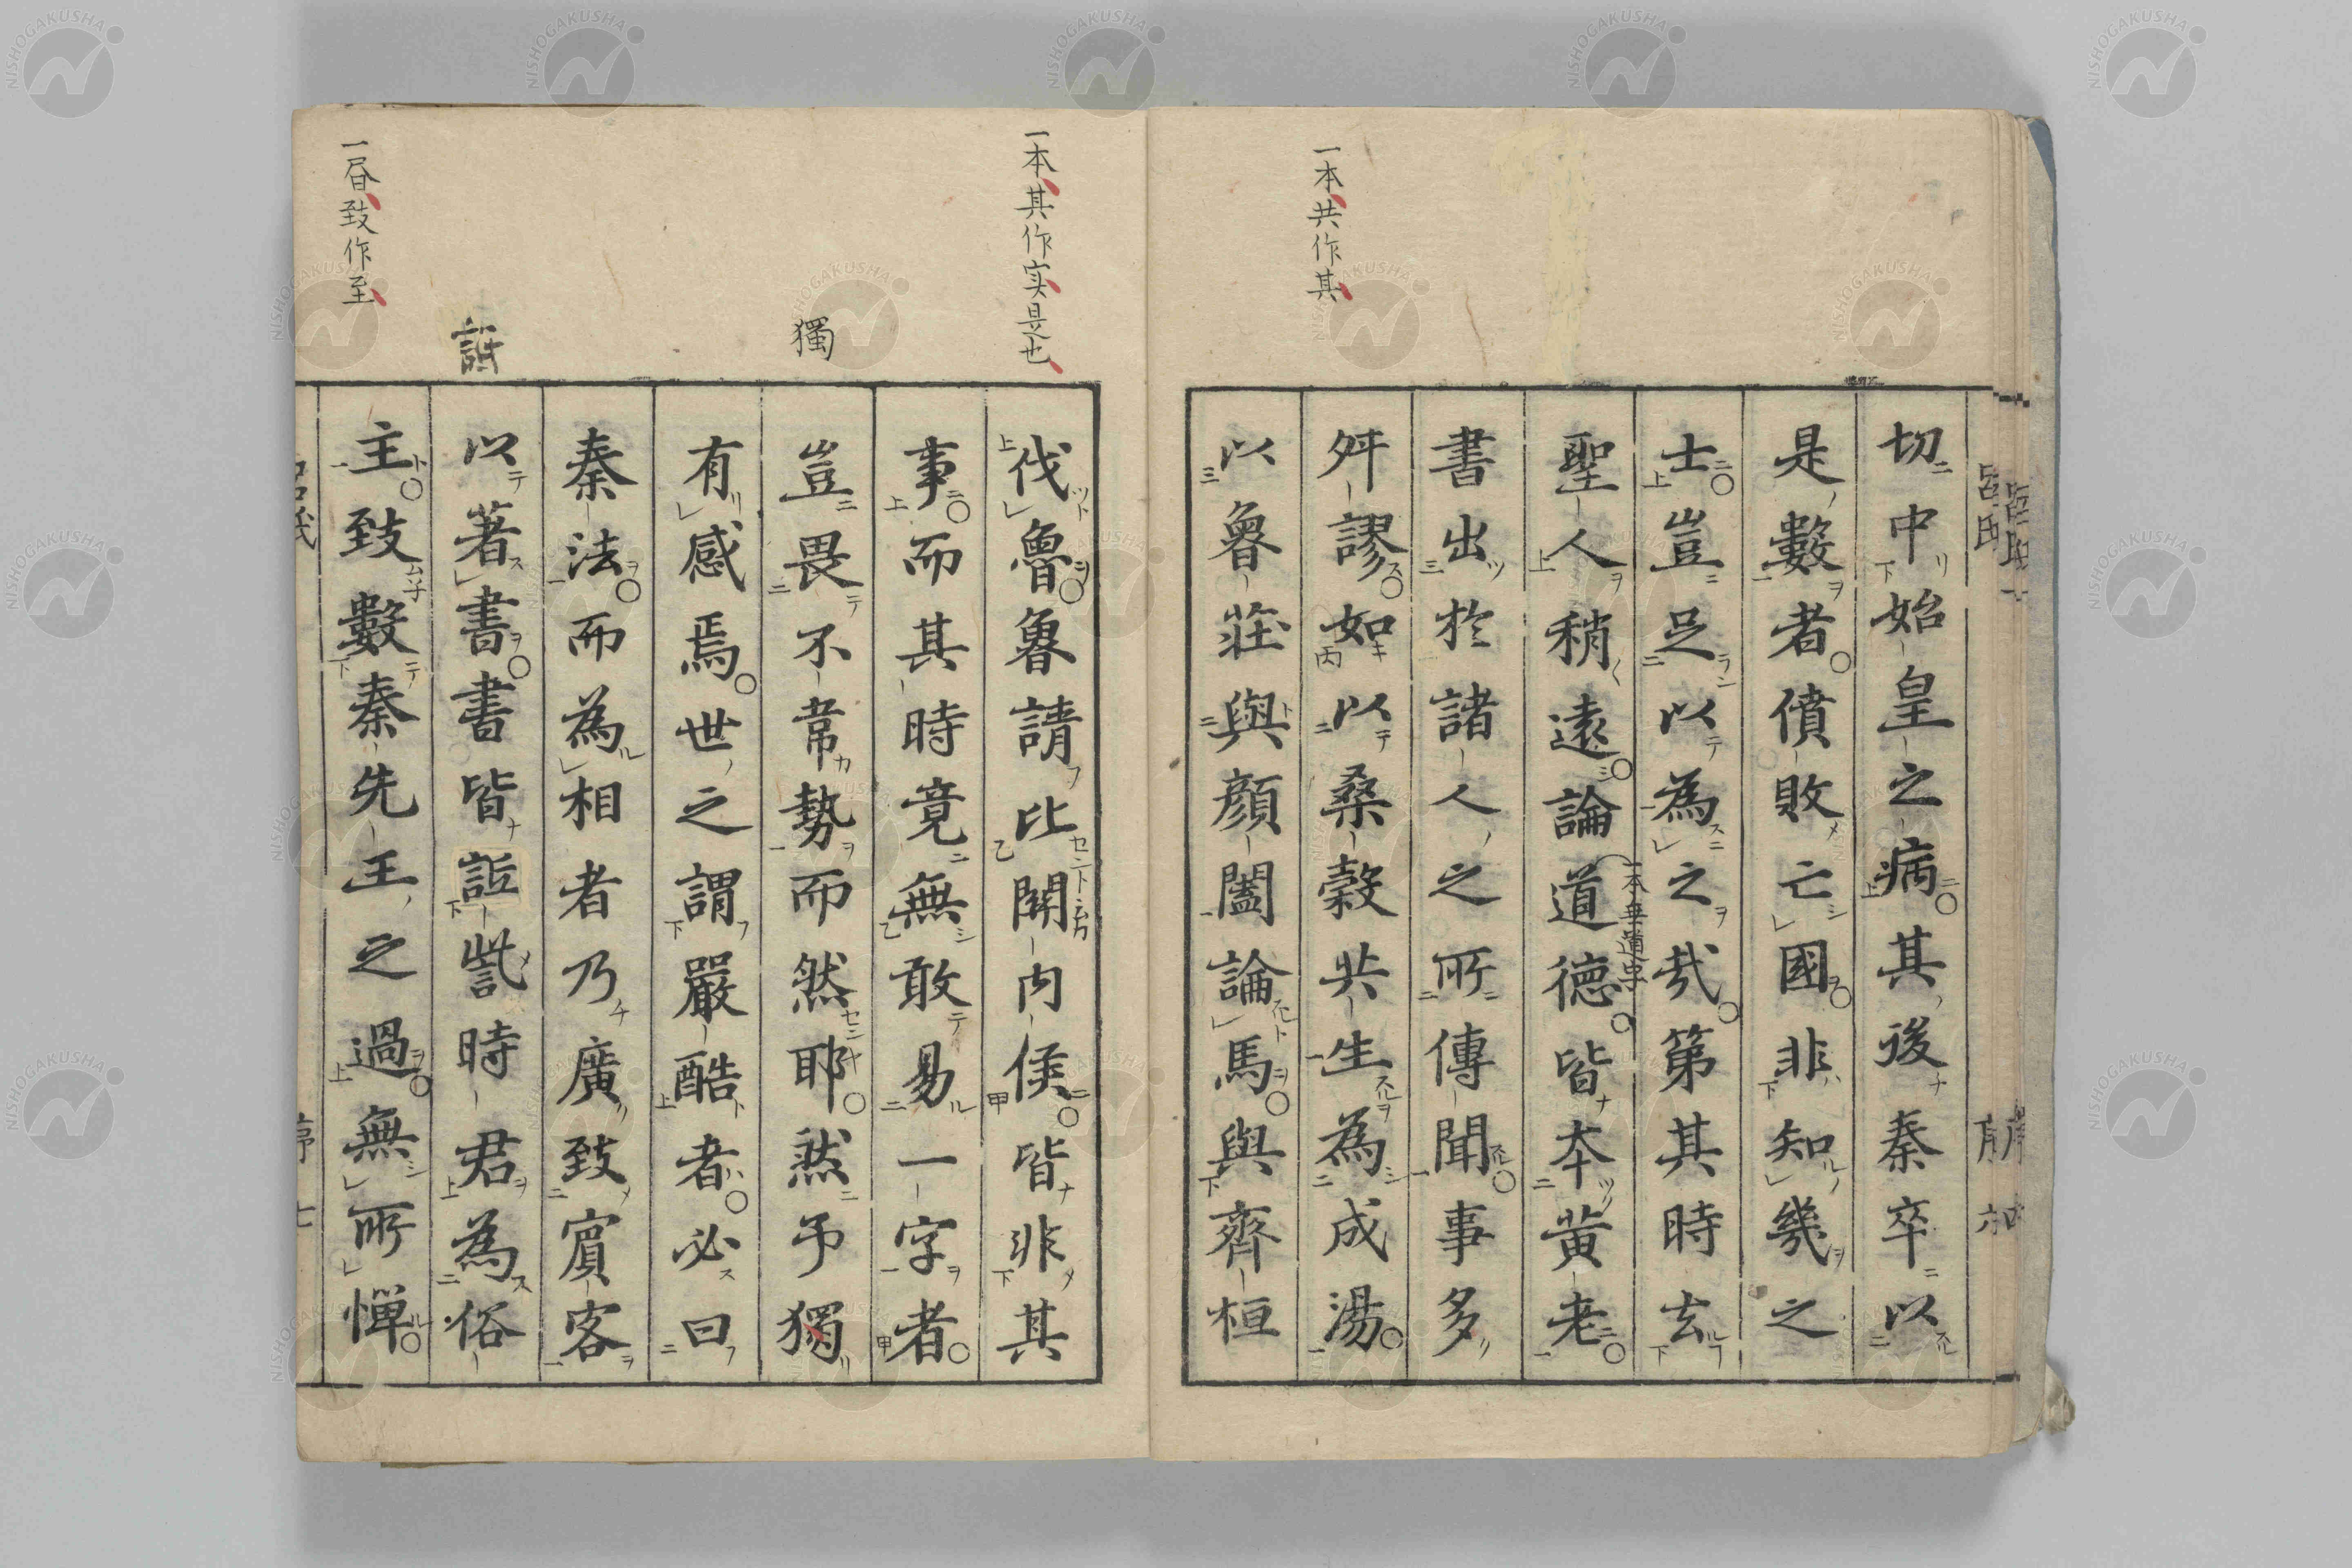 切中始皇之病其後秦卒以
是數者僨敗亡國非知幾之
士豈足以為之哉第其時去
聖人稍遠論道德皆本黃老
一本無道字
書出於諸人之所傳聞事多
舛謬如以桑穀共生為成湯
以魯莊與顏闔論馬與齊桓
一本共作其
伐魯魯請比關內侯皆非其
事而其時竟無敢易一字者
豈畏不韋勢而然耶然予獨
有感焉世之謂嚴酷者必曰
秦法而為相者乃廣致賓客
以著書書皆詆訾時君為俗
主致數秦先王之過無所憚
一本其作実是也
獨
詆
一昬致作至
呂氏
序
NISHOGAKUSHA